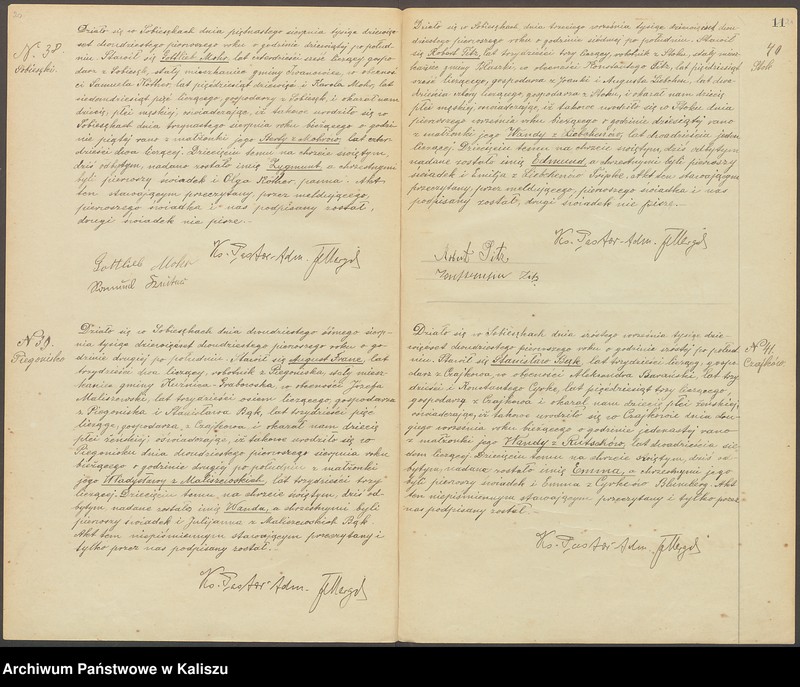 20
N. 38.
Sobieszki.
Działo się w Sobieszkach dnia piętnastego sierpnia tysiąc dziewięć-
set dwudziestego pierwszego roku o godzinie dziewiątej po połud-
niu. Stawił się Gottlieb Mohr, lat czterdzieści sześć liczący gospo-
darz z Sobiesęk, stały mieszkaniec gminy Iwanowice, w obecnoś-
ci Samuela Köther, lat pięćdziesiąt dziewięć i Karola Mohr, lat
siedemdziesiąt pięć liczącego, gospodarzy z Sobiesęk i okazał nam
dziecię, płci męzkiej, oświadczając, iż takowe urodziło się w
Sobieszkach dnia trzynastego sierpnia roku bieżącego o godzi-
nie piątej rano z małżonki jego Herty z Mohrów, lat czter-
dzieści dwa liczącej. Dziecięciu temu na chrzcie świętym,
dziś odbytym, nadane zostało imię Zygmunt, a chrzestnymi
byli pierwszy świadek i Olga Köther, panna. Akt
ten stawającym przeczytany przez meldującego,
pierwszego świadka i nas podpisany został,
drugi świadek nie pisze.
Ks. Pastor-Adm.
Gottlieb Mohr
N 39.
Piegonisko
Działo się w Sobieszkach dnia dwudziestego ósmego sierp-
nia tysiąc dziewięćset dwudziestego pierwszego roku o go-
dzinie drugiej po południu. Stawił się August Franc, lat
trzydzieści dwa liczący, robotnik z Piegoniska, stały miesz-
kaniec gminy Kuźnica-Grabowska, w obecności Józefa
Maliszewski lat trzydzieści osiem liczącego, gospodarza
z Piegoniska i Stanisława Bąk, lat trzydzieści pięć
liczącego, gospodarza z Czajkowa i okazał nam dziecię
płci żeńskiej oświadczając, iż takowe urodziło się w
Piegonisku dnia dwudziestego pierwszego sierpnia roku
bieżącego o godzinie drugiej po południu z małżonki
jego Władysławy z Maliszewskich, lat trzydzieści trzy
liczącej. Dziecięciu temu, na chrzcie świętym, dziś od-
bytym nadane zostało imię Wanda, a chrzestnymi byli
pierwszy świadek i Julijanna z Maliszewskich Bąk
Akt ten niepiśmiennym stawającym przeczytany i
tylko przez nas podpisany został.
Ks. Pastor-Adm.
11
40
Stok
Działo się w Sobieszkach dnia trzeciego września tysiąc dziewięćset dwu-
dziestego pierwszego roku o godzinie siódmej po południu. Stawił
się Robert Pitz, lat trzydzieści trzy liczący, robotnik z Stoku, stały miesz-
kaniec gminy Błaszki, w obecności Konstantego Pitz, lat pięćdziesiąt
sześć liczącego, gospodarza z Janki i Augusta Liebchen, lat dwa-
dzieścia cztery liczącego, gospodarza z Stoku, i okazał nam dziecię
płci męzkiej, oświadczając, iż takowe urodziło się w Stoku dnia
pierwszego września roku bieżącego o godzinie dziesiątej rano
z małżonki jego Wandy z Liebchenów, lat dwadzieścia jeden
liczącej. Dziecięciu temu na chrzcie świętym, dziś odbytym
nadane zostało imię Edmund, a chrzestnymi byli pierwszy
świadek i Emilja z Liebchenów Päpke. Akt ten stawającym
przeczytany, przez meldującego, pierwszego świadka i nas
podpisany został, drugi świadek nie pisze.
Ks. Pastor-Adm.
Pitz
N 41.
Czajków.
Działo się w Sobieszkach dnia szóstego września tysiąc dzie-
więćset dwudziestego pierwszego roku o godzinie szóstej po połud-
niu. Stawił się Stanisław Bąk, lat trzydzieści liczący, gospo-
darz z Czajkowa w obecności Aleksandra lat trzy-
dzieści i Konstantego Cyrke, lat pięćdziesiąt trzy liczącego
gospodarzy z Czajkowa i okazał nam dziecię płci żeńskiej,
oświadczając, iż takowe urodziło się w Czajkowie dnia dru-
giego września roku bieżącego o godzinie jedenastej rano
z małżonki jego Wandy z Kutschów, lat dwadzieścia sie-
dem liczącej. Dziecięciu temu na chrzcie świętym, dziś od-
bytym, nadane zostało imię Emma, a chrzestnymi jego
byli pierwszy świadek i Emma z Cyrków Blümberg. Akt
ten niepiśmiennym stawającym przeczytany i tylko przez
nas podpisany został.
Ks. Pastor Adm.
Archiwum Państwowe w Kaliszu